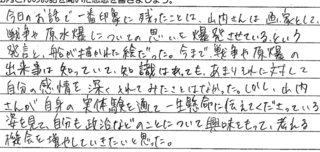 今日のお話で一番印象に残ったことは、山内さんは画家として、
戦争や原水爆についての思いを爆発させている。という
発言と、船が描かれた絵だった。今まで戦争や原爆の
出来事は知っていて、知識はあれても、あまりそれに対して
自分の感情を深く入れてみたことはなかった。しかし、山内
さんが自身の実体験を通して一生懸命に伝えてくださっている
姿を見て、自分も政治などのことについて興味をもって、考える
機会を増やしていきたいと思った。